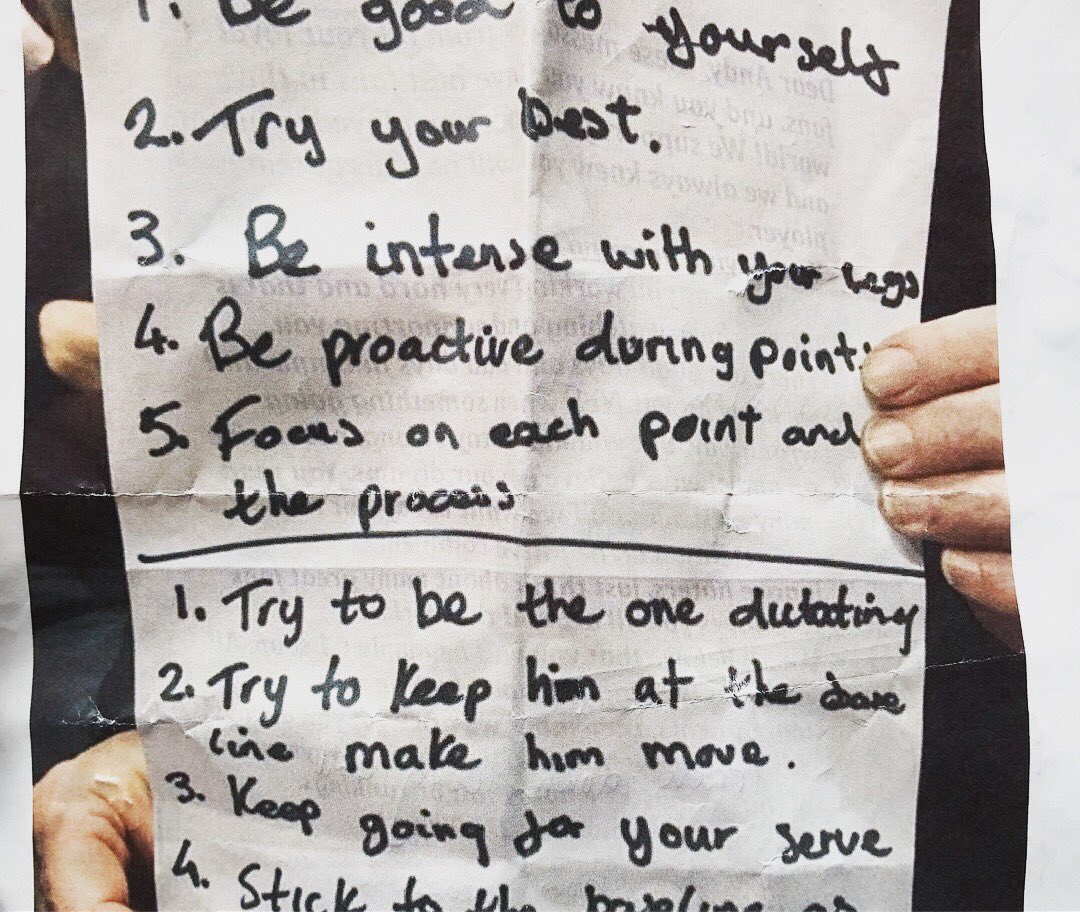 1. Be good to yourself
2. Try your best.
3. Be intense with your legs
4. Be proactive during points
5. Focus on each point and
the process
1. Try to be the one dictating
2. Try to keep him at the base
line make him move.
3. Keep going for your serve
4. Stick to the baseline as